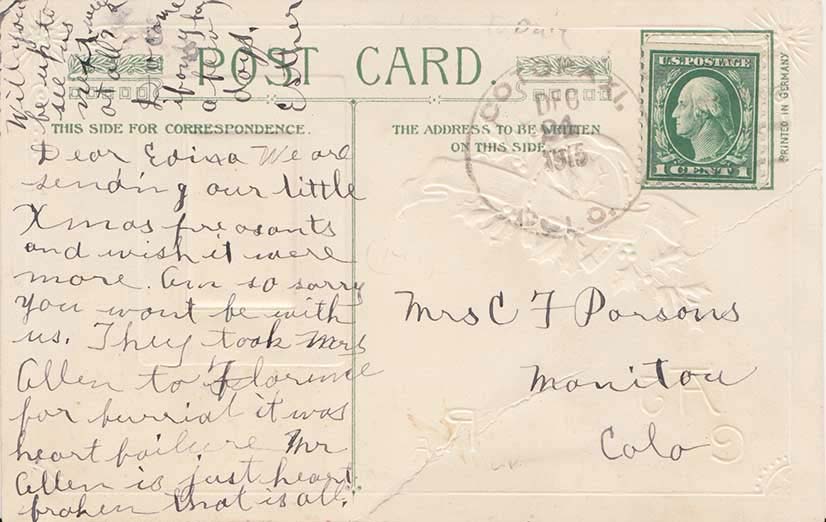 POST CARD.
THIS SIDE FOR CORRESPONDENCE.
THE ADDRESS TO BE WRITTEN
ON THIS SIDE
U.S. POSTAGE
1 CENT 1
PRINTED IN GERMANY
DEC
1915
Dear Edina We are
sending our little
Xmas presants
and wish it were
more. Am so sorry
you wont be with
us. They took Mrs
Allen to Florence
for burrial it was
heart failure Mr
Allen is just heart
broken that is all.
Will you
be up to
see us
next
at all?
to come
if only for
a few
days.
Esther
Mrs C F Parsons
Manitou
Colo